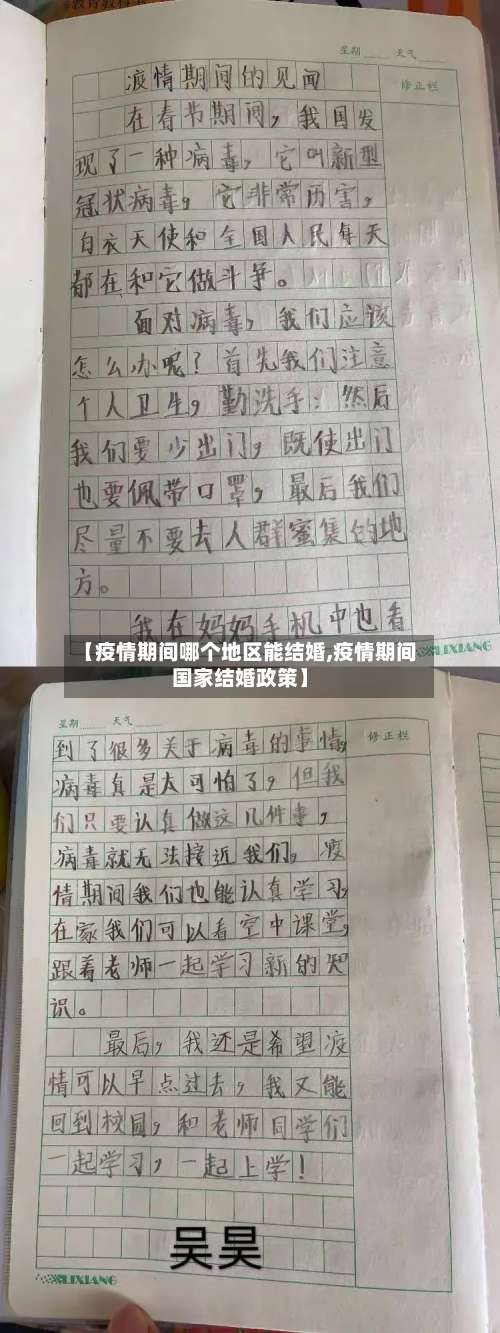 星期 天气
修正栏
疫情期间的见闻
在春节期间,我国发
现了一种病毒,它叫新型
冠状病毒,它非常历害,
白衣天使和全国人民每天
都在和它做斗争。
面对病毒,我们应该
怎么办呢?首先我们注意
个人卫生,勤洗手;然后
我们要少出门,既使出门
也要佩带口罩,最后我们
尽量不要去人群蜜集的地
方。
我在妈妈手机中也看
【疫情期间哪个地区能结婚,疫情期间
国家结婚政策】
星期 天气
修正栏
到了很多关于病毒的事情,
病毒真是太可怕了,但我
们只要认真做这几件事,
病毒就无法接近我们。疫
情期间我们也能认真学习,
在家我们可以看空中课堂,
跟着老师一起学习新的知
识。
最后,我还是希望疫
情可以早点过去,我又能
回到校园,和老师同学们
一起学习,一起上学!
吴昊
LIXIANG